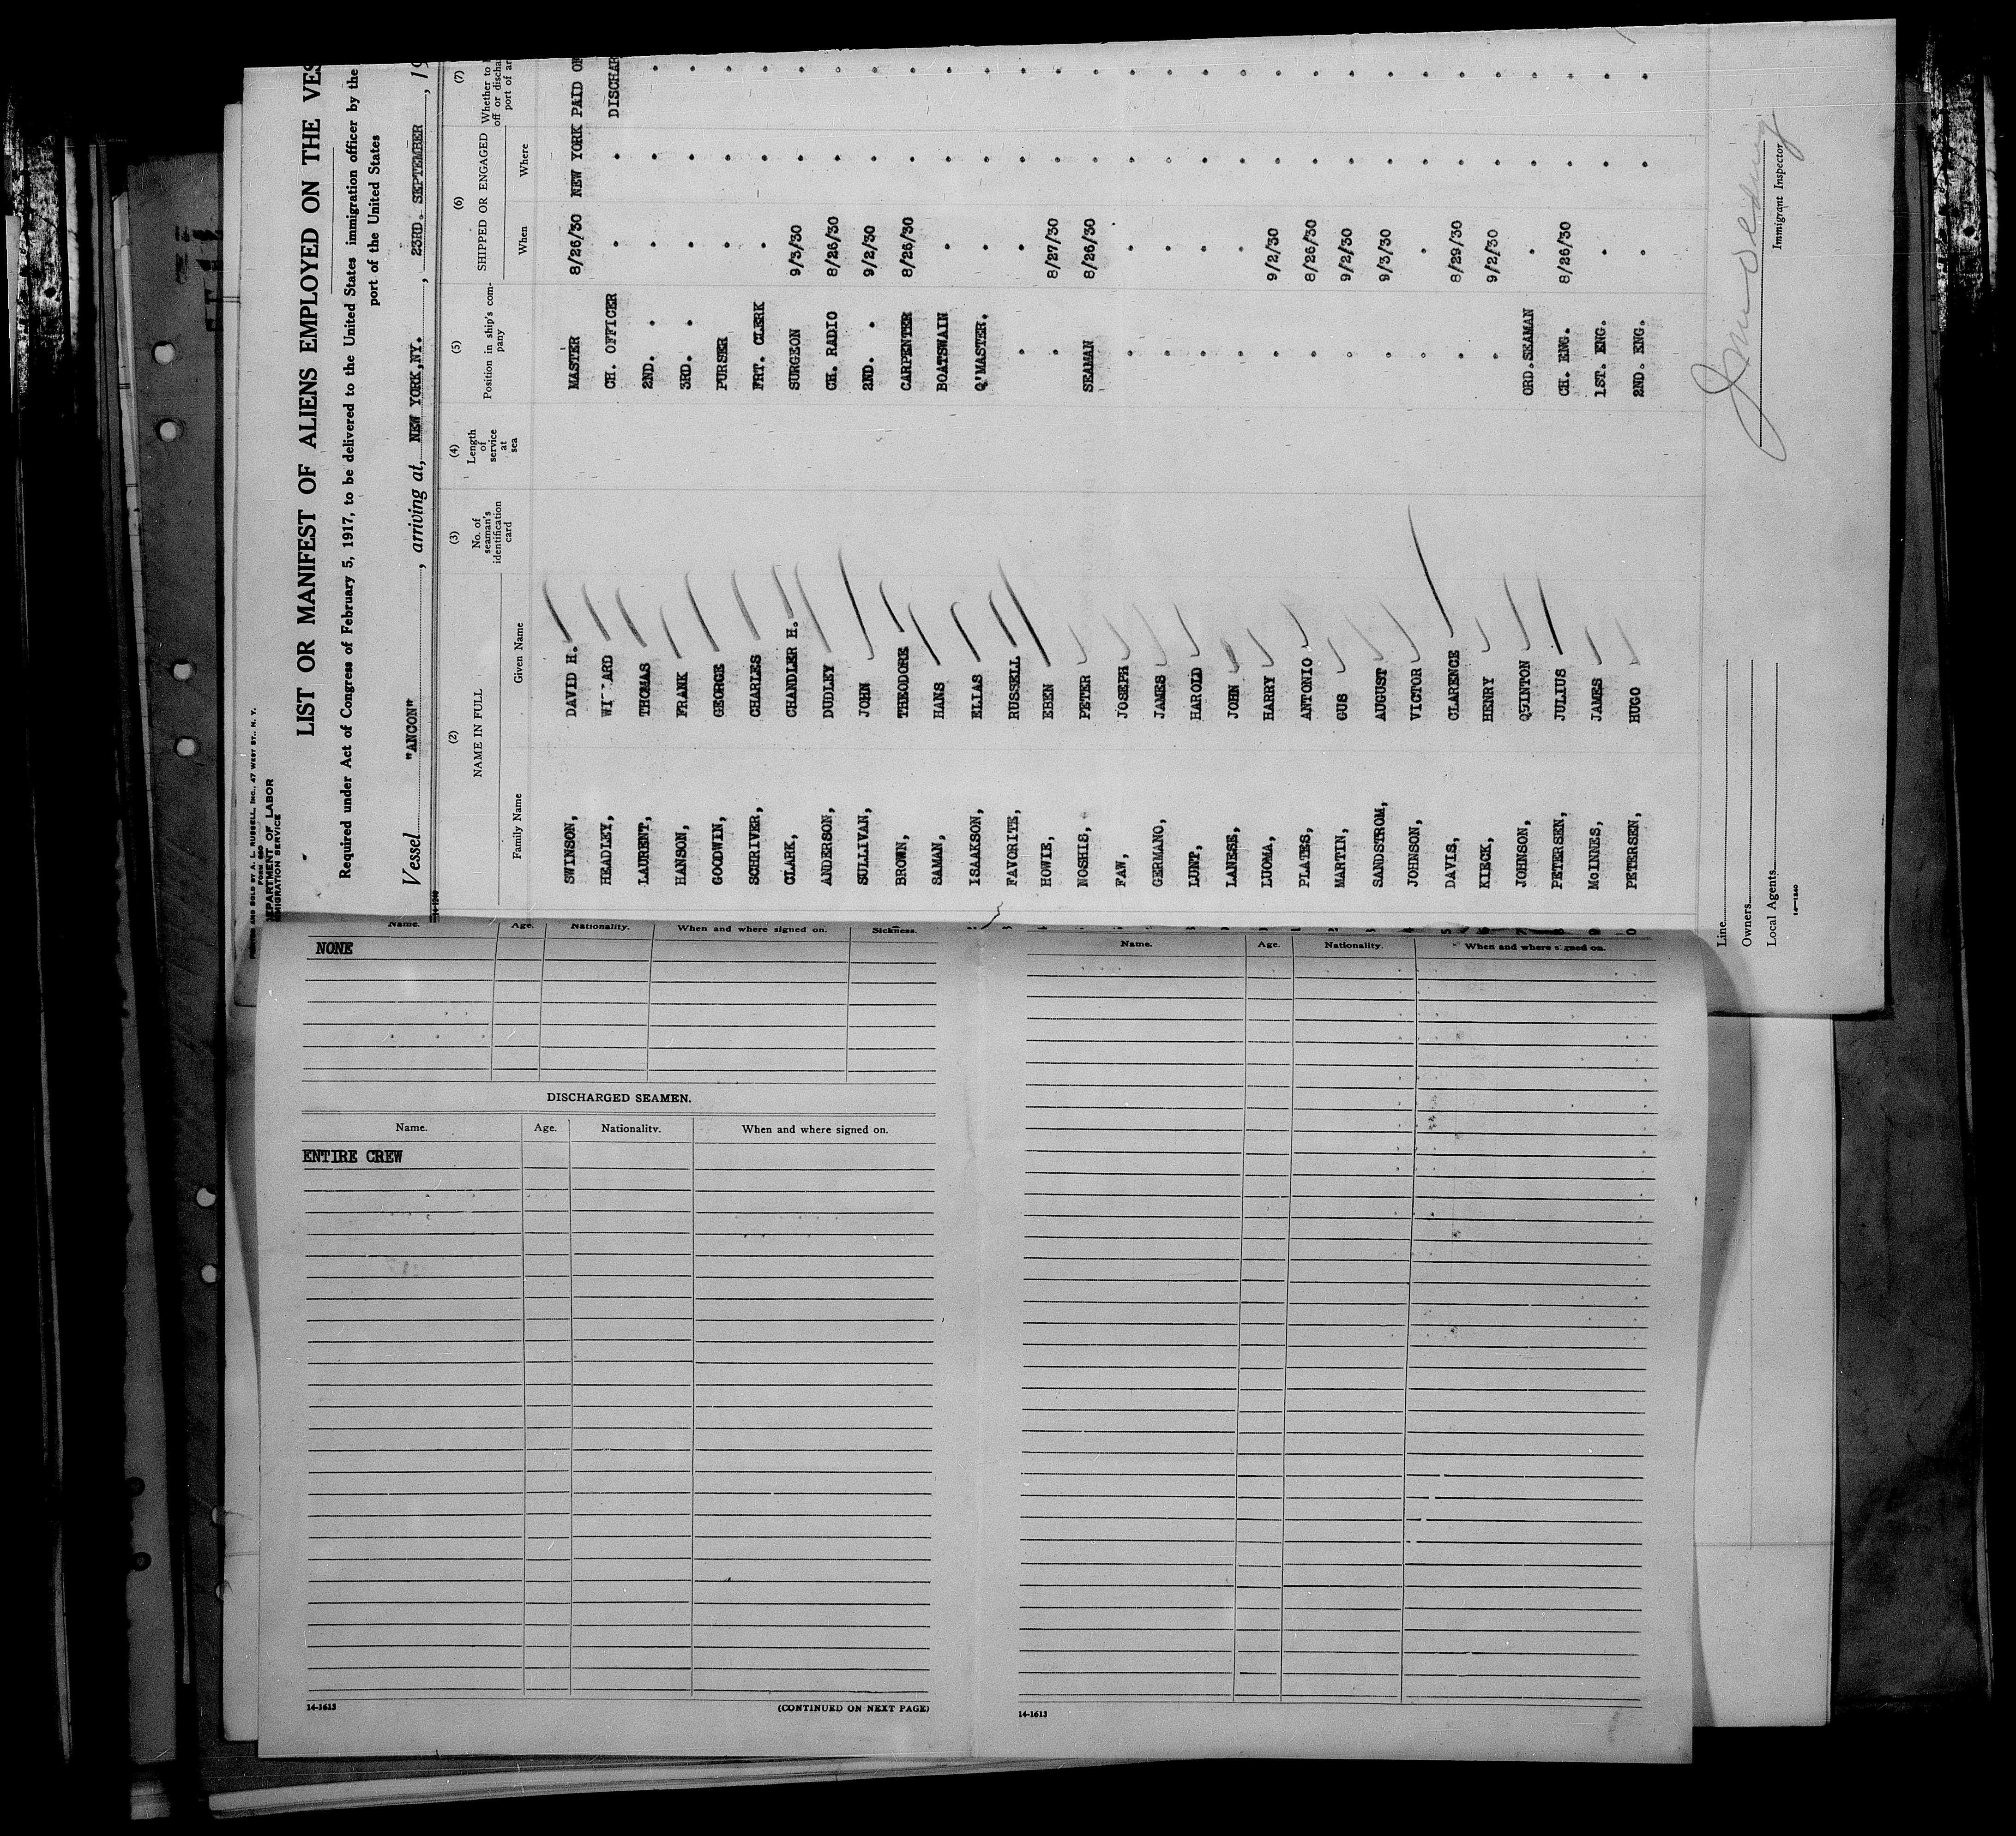 PRINTED AND SOLD BY A. L. RUSSELL, INC., 47 WEST ST., N. Y.
Form 680
DEPARTMENT OF LABOR
IMMIGRATION SERVICE
LIST OR MANIFEST OF ALIENS EMPLOYED ON THE VES
Required under Act of Congress of February 5, 1917, to be delivered to the United States immigration officer by the
port of the United States
Vessel "ANCON", arriving at, NEW YORK,NY., 23RD. SEPTEMBER, 19
14-1240
(2) (3) (4) (5) (6) (7)
NAME IN FULL
No. of seaman's identification card
Length of service at sea
Position in ship's com-pany
SHIPPED OR ENGAGED
Whether to
off or discha
port of ar
Family Name Given Name When Where
SWINSON, DAVID H. MASTER 8/26/30 NEW YORK PAID OF
HEADLEY, WI ARD CH. OFFICER " " DISCHAR
LAURENT, THOMAS 2ND. " " " "
HANSON, FRANK 3RD. " " " "
GOODWIN, GEORGE PURSER " " "
SCHRIVER, CHARLES FRT. CLERK " " "
CLARK, CHANDLER H. SURGEON 9/3/30 " "
ANDERSON, DUDLEY CH. RADIO 8/26/30 " "
SULLIVAN, JOHN 2ND. " 9/2/30 " "
BROWN, THEODORE CARPENTER 8/26/30 " "
SAMAN, HANS BOATSWAIN " " "
ISAAKSON, ELIAS Q'MASTER. " " "
FAVORITE, RUSSELL " " " "
HOWIE, EBEN " 8/27/30 " "
NOSHIS, PETER SEAMAN 8/26/30 " "
FAW, JOSEPH " " " "
GERMANO, JAMES " " " "
LUNT, HAROLD " " " "
LANESE, JOHN " " " "
LUOMA, HARRY " 9/2/30 " "
PLATES, ANTONIO " 8/26/30 " "
MARTIN, GUS " 9/2/30 " "
SANDSTROM, AUGUST " 9/3/30 " "
JOHNSON, VICTOR " " " "
DAVIS, CLARENCE " 8/29/30 " "
KIECK, HENRY " 9/2/30 " "
JOHNSON, QUINTON ORD.SEAMAN " " "
PETERSEN, JULIUS CH. ENG. 8/26/30 " "
McINNES, JAMES 1ST. ENG. " " "
PETERSEN, HUGO 2ND. ENG. " " "
Line
Owners
Local Agents
14-1240
Immigrant Inspector
Name. Age. Nationality. When and where signed on. Sickness.
NONE
DISCHARGED SEAMEN.
Name. Age. Nationality. When and where signed on.
ENTIRE CREW
14-1613 (CONTINUED ON NEXT PAGE)
Name. Age. Nationality. When and where signed on.
14-1613